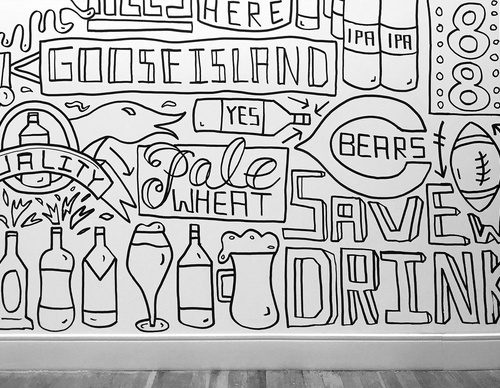 HERE
IPA IPA
88
GOOSE ISLAND
YES
BEARS
QUALITY
Pale
WHEAT
SAVE
DRINK